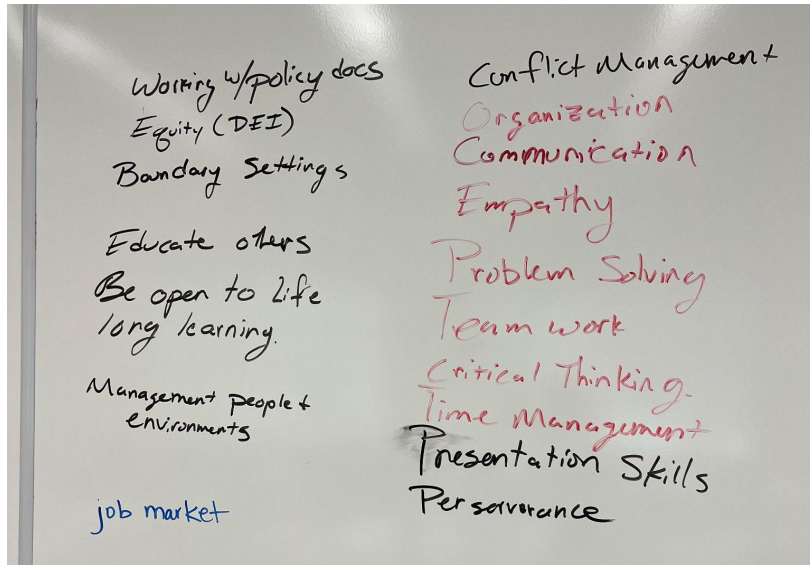 Working w/policy docs
Equity (DEI)
Boundary Settings
Educate others
Be open to Life
long learning.
Management people +
environments
job market
Conflict Management
Organization
Communication
Empathy
Problem Solving
Team work
Critical Thinking.
Time Management
Presentation Skills
Perserverance